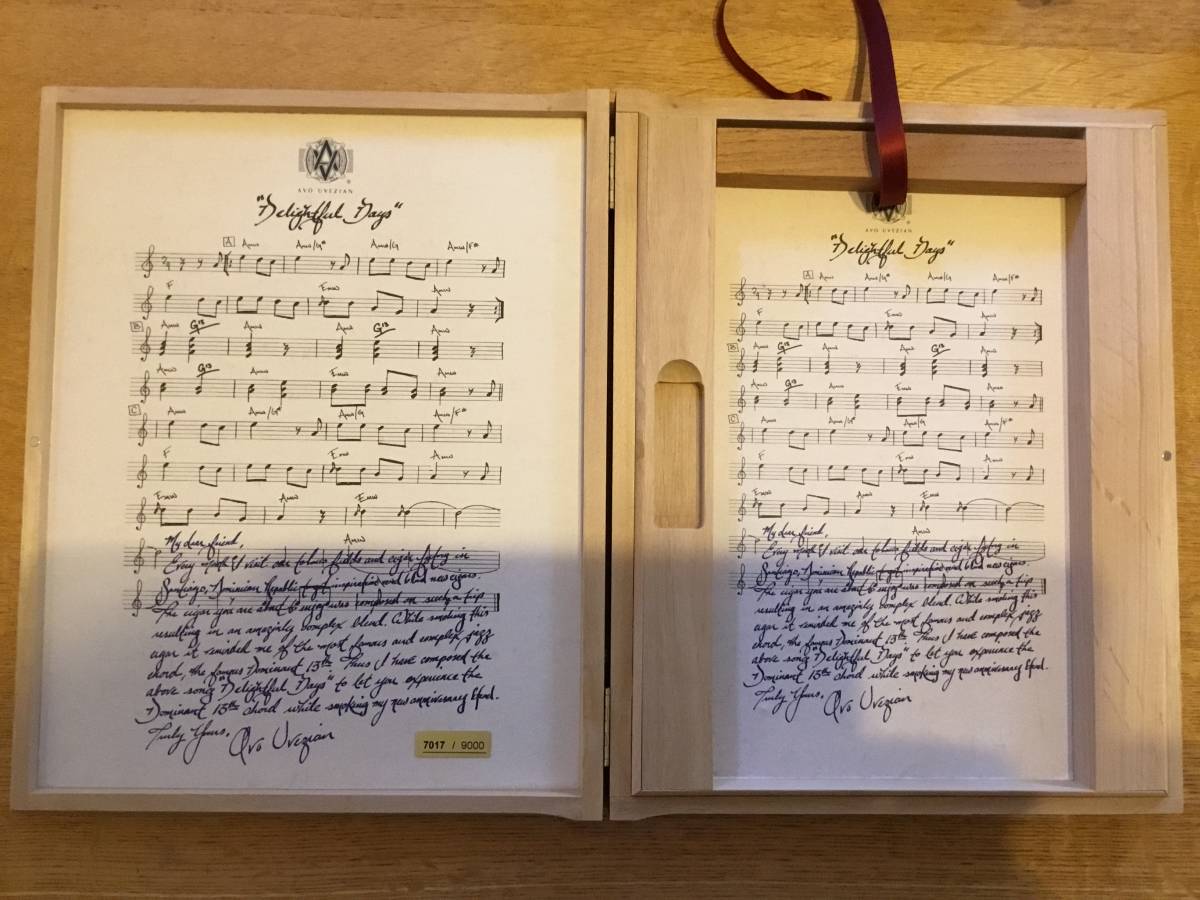 AVO UVEZIAN
"Delightful Days"
A Ami7 Ami7/G# Ami7/G Ami7/F#
F Emi7 Ami7
B Ami7 G13 Ami7 Ami7 G13 Ami7
Ami7 G13 Ami7 Emi7 Ami7
C Ami7 Ami7/G# Ami7/G Ami7/F#
F Emi7 Ami7
Emi7 Ami7 Emi7
My dear friend, Ami7
Every month I visit our tobacco fields and cigar factory in
Santiago, Dominican Republic to get inspiration and blend new cigars.
The cigar you are about to enjoy was composed on such a trip
resulting in an amazingly complex blend. While smoking this
cigar it reminded me of the most famous and complex jazz
chord, the famous Dominant 13th. Thus I have composed the
above song "Delightful Days" to let you experience the
Dominant 13th chord while smoking my new anniversary blend.
Truly Yours,
Avo Uvezian
7017 / 9000
AVO UVEZIAN
"Delightful Days"
A Ami7 Ami7/G# Ami7/G Ami7/F#
F Emi7 Ami7
B Ami7 G13 Ami7 Ami7 G13 Ami7
Ami7 G13 Ami7 Emi7 Ami7
C Ami7 Ami7/G# Ami7/G Ami7/F#
F Emi7 Ami7
Emi7 Ami7 Emi7
My dear friend, Ami7
Every month I visit our tobacco fields and cigar factory in
Santiago, Dominican Republic to get inspiration and blend new cigars.
The cigar you are about to enjoy was composed on such a trip
resulting in an amazingly complex blend. While smoking this
cigar it reminded me of the most famous and complex jazz
chord, the famous Dominant 13th. Thus I have composed the
above song "Delightful Days" to let you experience the
Dominant 13th chord while smoking my new anniversary blend.
Truly Yours,
Avo Uvezian